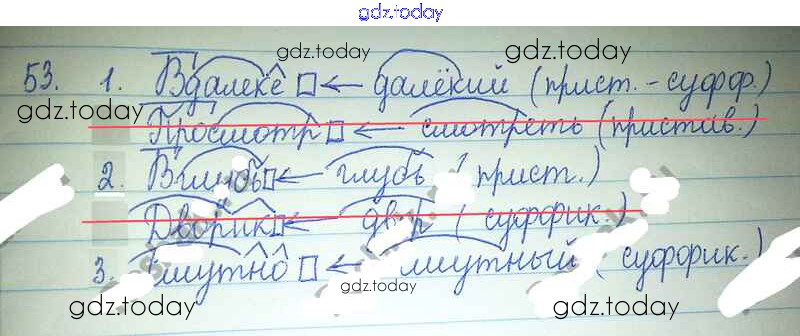 gdz.today
gdz.today gdz.today
53. 1. Вдалеке ← далёкий (прист.-суфф.)
gdz.today
Просмотр ← смотреть (пристав.)
gdz.today gdz.today
2. Вглубь ← глубь (прист.)
Дворик ← двор (суффик.)
3. Смутно ← смутный (суффик.)
gdz.today
gdz.today gdz.today